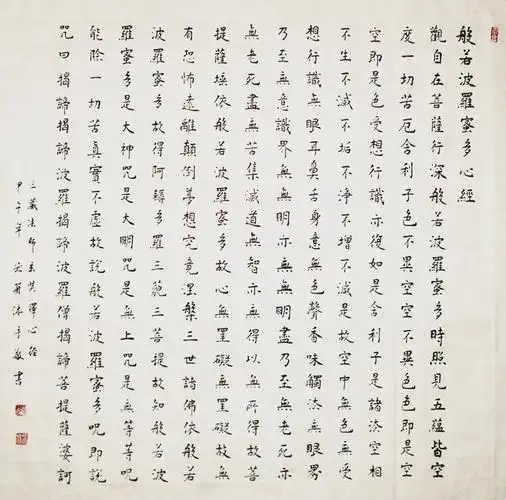 般若波羅蜜多心經
觀自在菩薩行深般若波羅蜜多時照見五蘊皆空
度一切苦厄舍利子色不異空空不異色色即是空
空即是色受想行識亦復如是舍利子是諸法空相
不生不滅不垢不淨不增不減是故空中無色無受
想行識無眼耳鼻舌身意無色聲香味觸法無眼界
乃至無意識界無無明亦無無明盡乃至無老死亦
無老死盡無苦集滅道無智亦無得以無所得故菩
提薩埵依般若波羅蜜多故心無罣礙無罣礙故無
有恐怖遠離顛倒夢想究竟涅槃三世諸佛依般若
波羅蜜多故得阿耨多羅三藐三菩提故知般若波
羅蜜多是大神咒是大明咒是無上咒是無等等咒
能除一切苦真實不虛故說般若波羅蜜多咒即說
咒曰揭諦揭諦波羅揭諦波羅僧揭諦菩提薩婆訶
三藏法師玄奘譯心經
甲午年沐手敬書